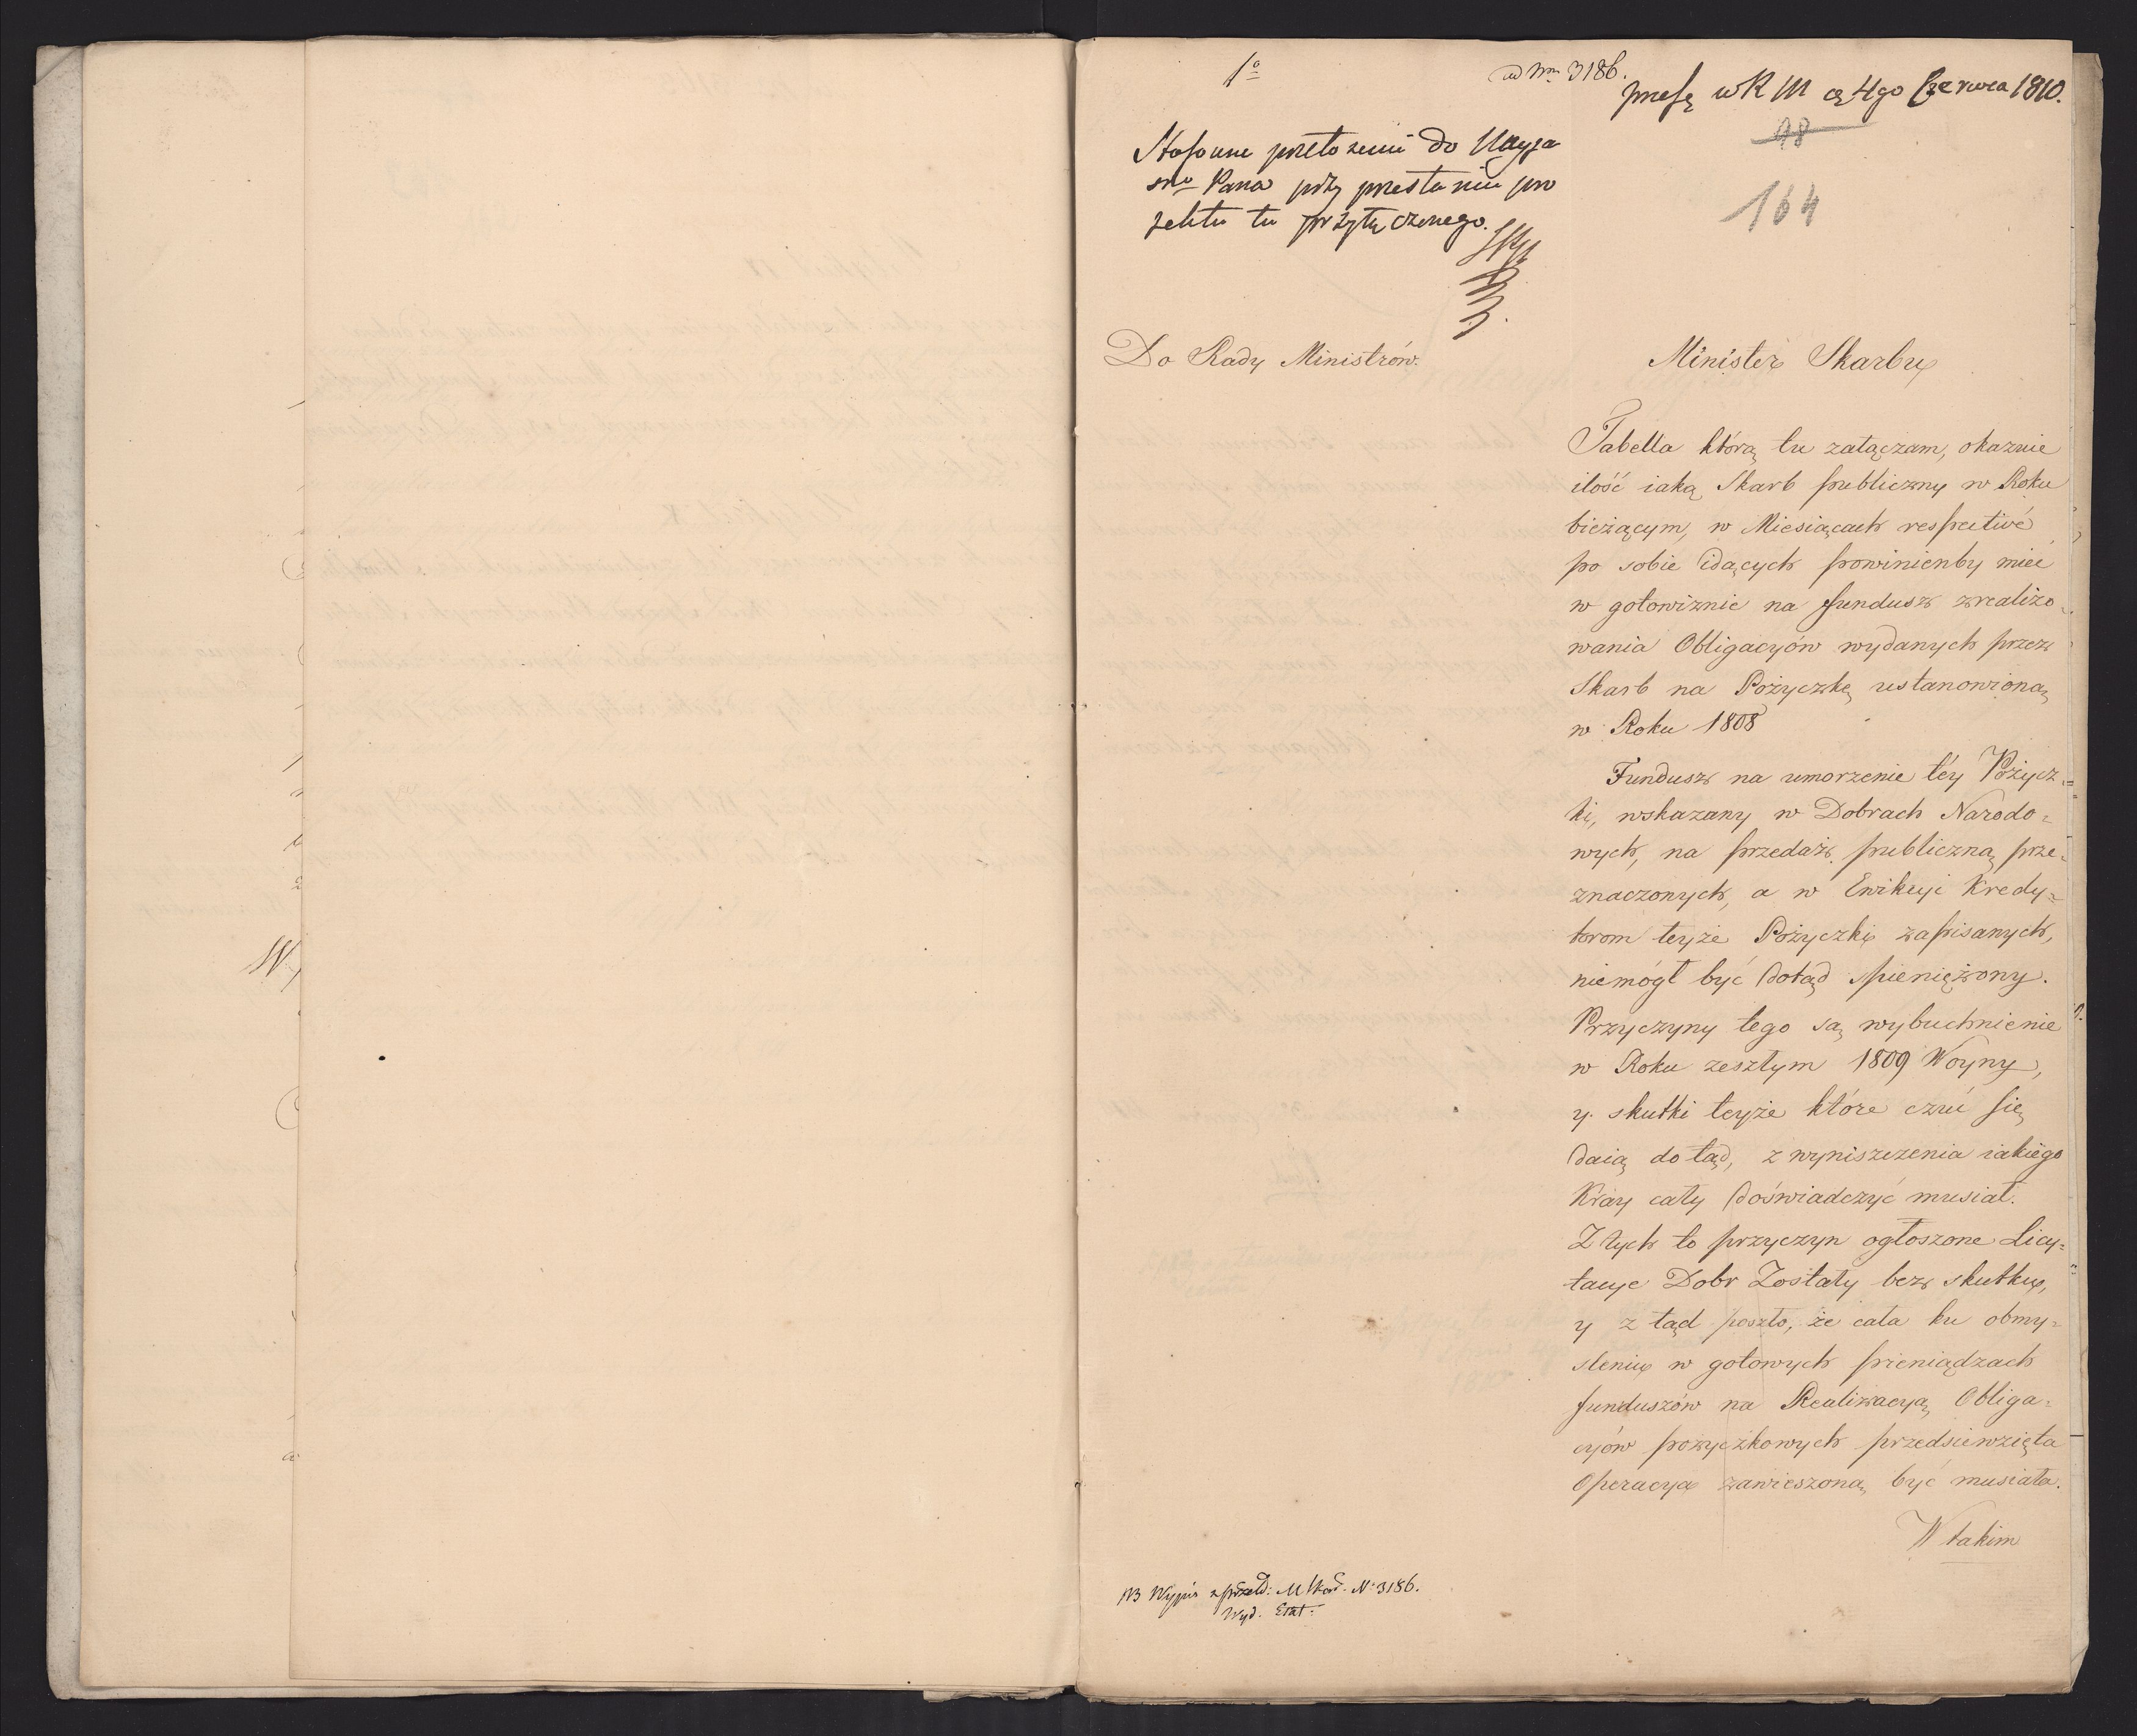 1o
ad Nrm 3186.
w R M 4go Czerwca 1810.
98
164
Stosowne przełożenie do Nayja
sno Pana przy przesłaniu pro
jektu tu przyłączonego.
Do Rady Ministrów.
Minister Skarbu
Tabella którą tu załączam, okazuie
ilość iaką Skarb publiczny w Roku
bieżącym, w Miesiącach respective
po sobie idących powinienby mieć
w gotowiznie na fundusz zrealizo=
wania Obligacyów wydanych przez
Skarb na Pożyczkę ustanowioną
w Roku 1808
Fundusz na umorzenie téy Pożycz=
ki, wskazany w Dobrach Narodo=
wych, na przedaż publiczną prze=
znaczonych, a w Ewikcyi Kredy=
torom teyże Pożyczki zapisanych,
niemógł być dotąd spieniężony.
Przyczyny tego są wybuchnienie
w Roku zeszłym 1809 Woyny,
y skutki teyże które czuć się
daią do tąd, z wyniszczenia iakiego
Kray cały doświadczyć musiał.
Z tych to przyczyn ogłoszone Licy=
tacye Dobr Zostały bez skutku,
y z tąd poszło, że cała ku obmy=
sleniu w gotowych pieniądzach
funduszów na Realizacyą Obliga=
cyów pożyczkowych przedsiewzięta
Operacya zawieszoną być musiała.
W takim
NB Wypis z przeld: M Skar. N: 3186.
Wyd. Exat: